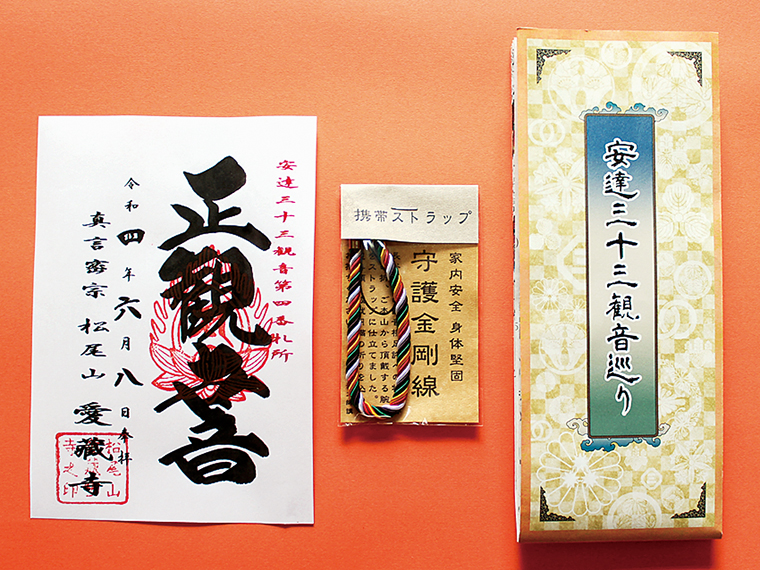 安達三十三観音第四番札所
正観世音
令和四年六月八日奉拝
真言密宗 松尾山 愛蔵寺
松尾山
寺之印
携帯ストラップ
家内安全 身体堅固
守護金剛線
ご本山から頂戴する腕
ストラップに仕立てました。
安達三十三観音巡り